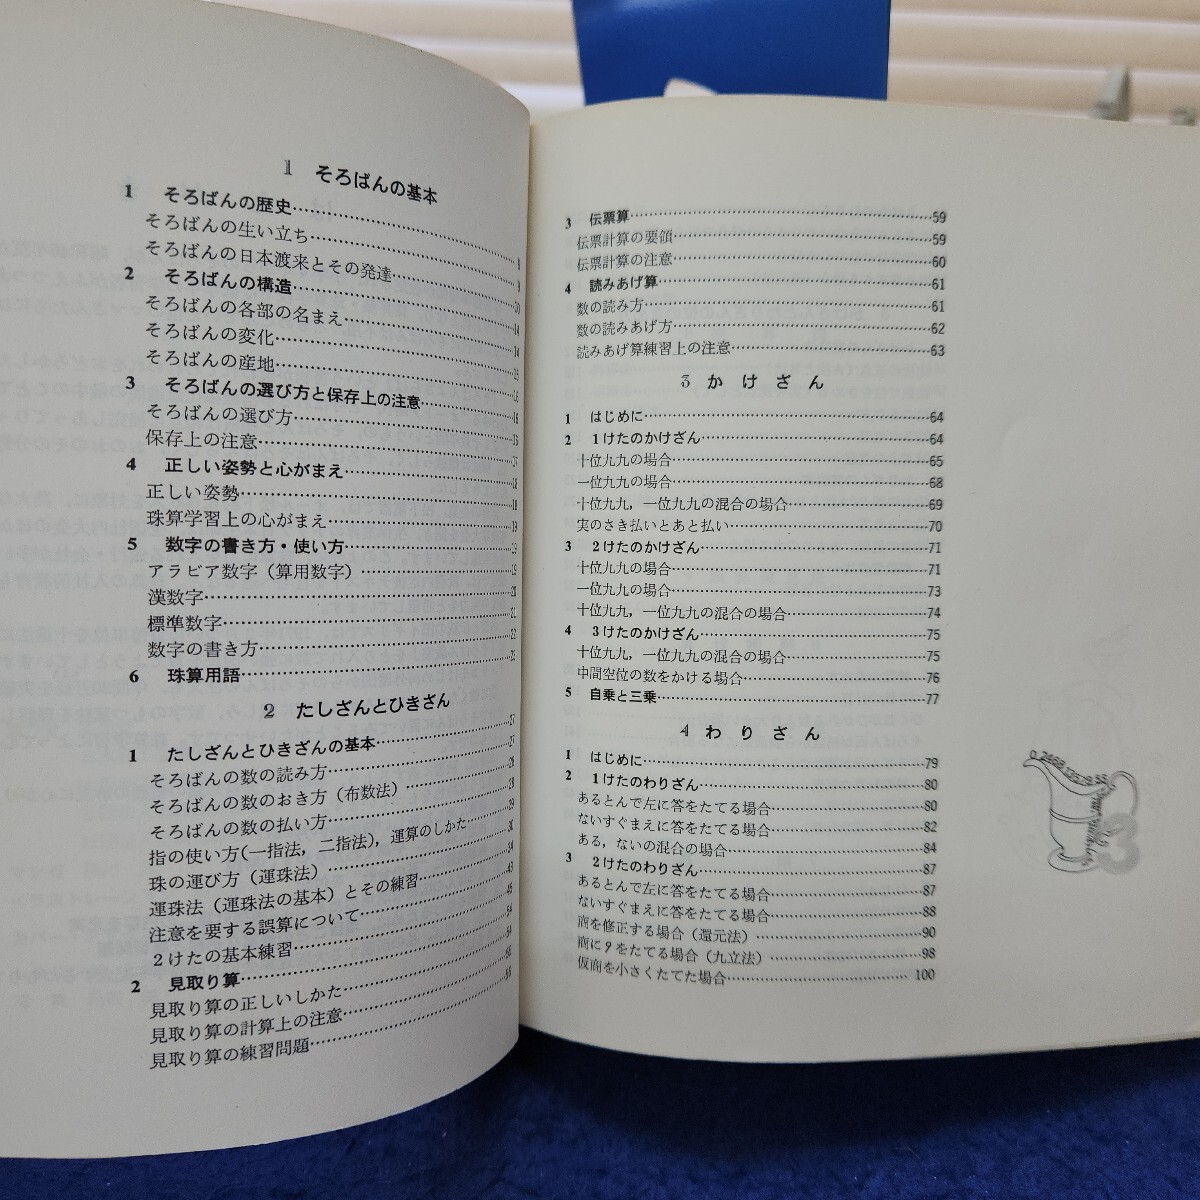 1 そろばんの基本
1 そろばんの歴史
そろばんの生い立ち 8
そろばんの日本渡来とその発達 9
2 そろばんの構造 10
そろばんの各部の名まえ 14
そろばんの変化 14
そろばんの産地 15
3 そろばんの選び方と保存上の注意 16
そろばんの選び方
保存上の注意
4 正しい姿勢と心がまえ 18
正しい姿勢 18
珠算学習上の心がまえ 19
5 数字の書き方・使い方 19
アラビア数字(算用数字) 19
漢数字
標準数字 21
数字の書き方
6 珠算用語
2 たしざんとひきざん
1 たしざんとひきざんの基本 27
そろばんの数の読み方
そろばんの数のおき方(布数法)
そろばんの数の払い方 28
指の使い方(一指法,二指法),運算のしかた
珠の運び方(運珠法) 30
運珠法(運珠法の基本)とその練習
注意を要する誤算について
2けたの基本練習
2 見取り算
見取り算の正しいしかた
見取り算の計算上の注意
見取り算の練習問題
3 伝票算 59
伝票計算の要領 59
伝票計算の注意 60
4 読みあげ算 61
数の読み方 61
数の読みあげ方 62
読みあげ算練習上の注意 63
3 かけざん
1 はじめに 64
2 1けたのかけざん 64
十位九九の場合 65
一位九九の場合 68
十位九九,一位九九の混合の場合 69
実のさき払いとあと払い 70
3 2けたのかけざん 71
十位九九の場合 71
一位九九の場合 73
十位九九,一位九九の混合の場合 74
4 3けたのかけざん 75
十位九九,一位九九の混合の場合 75
中間空位の数をかける場合 76
5 自乗と三乗 77
4 わりざん
1 はじめに 79
2 1けたのわりざん 80
あるとんで左に答をたてる場合 80
ないすぐまえに答をたてる場合 82
ある,ないの混合の場合 84
3 2けたのわりざん 87
あるとんで左に答をたてる場合 87
ないすぐまえに答をたてる場合 88
商を修正する場合(還元法) 90
商に9をたてる場合(九立法) 98
仮商を小さくたてた場合 100